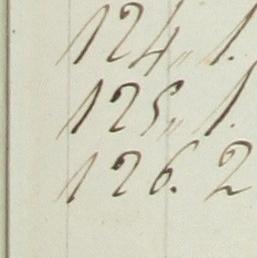 124 „ 1.
125 „ 1.
126. 2